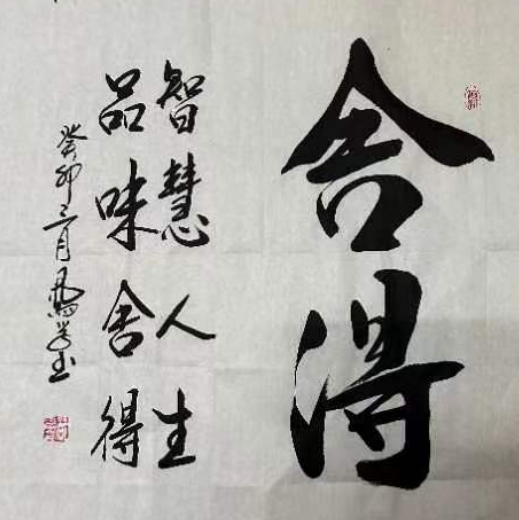 舍得
智慧人生
品味舍得
癸卯三月